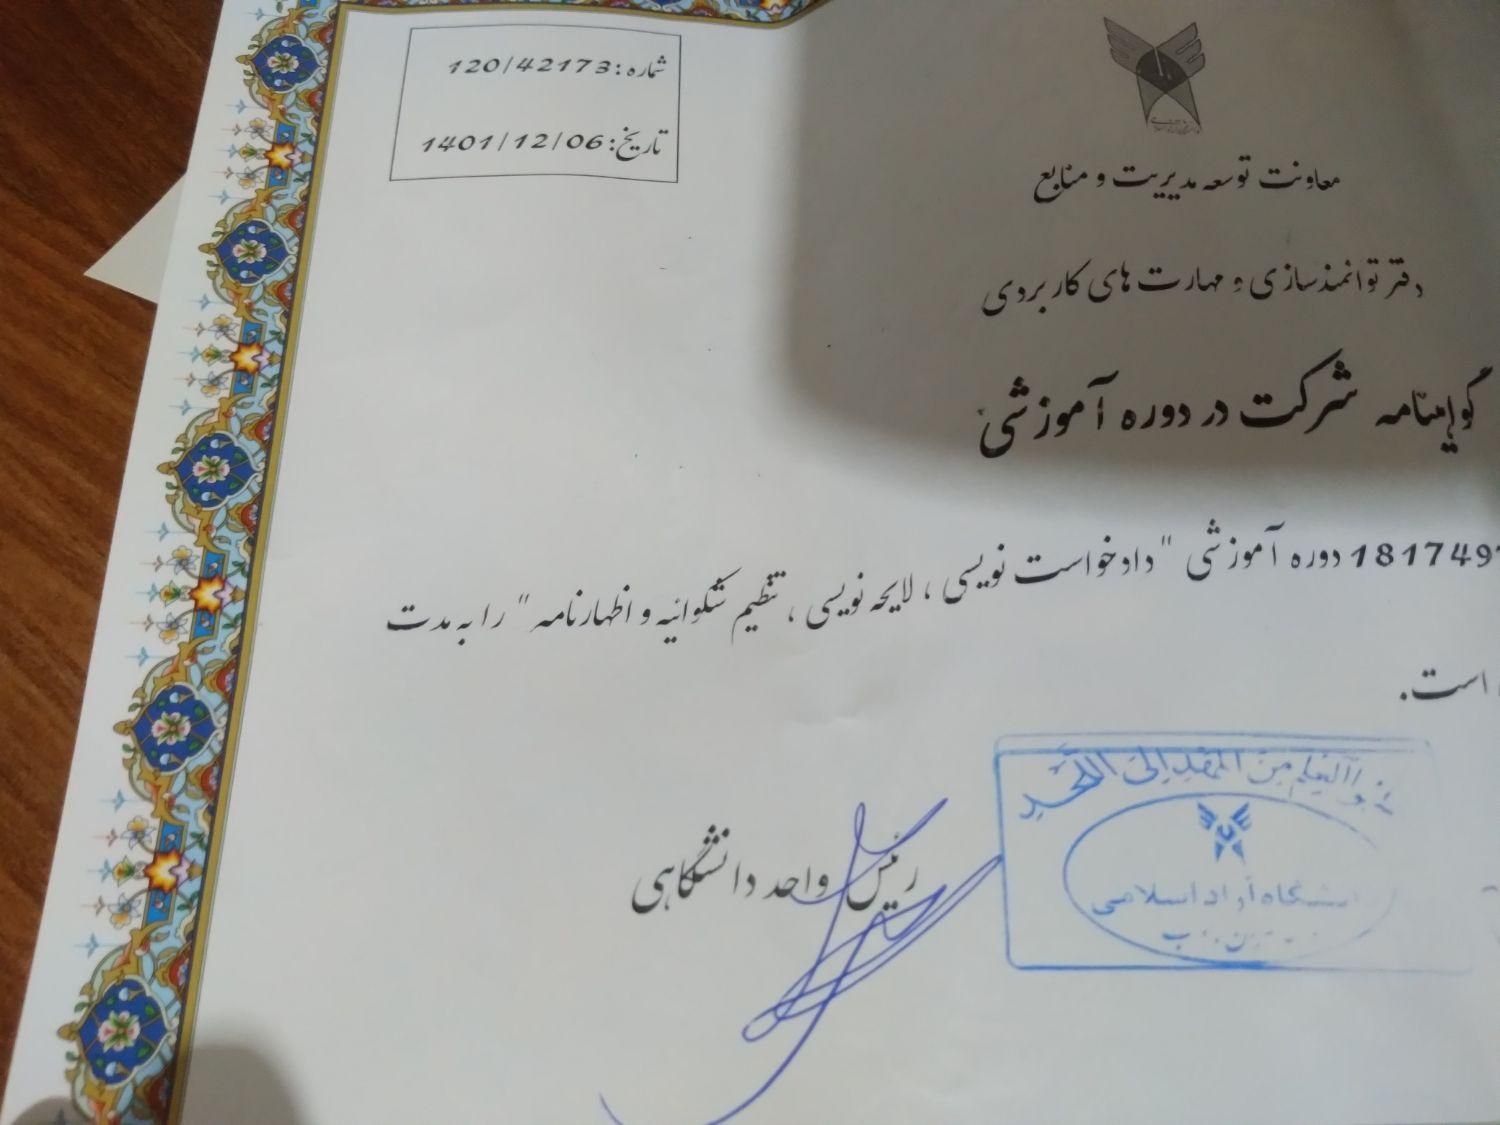 شماره: 120/42173
تاریخ: 1401/12/06
معاونت توسعه مدیریت و منابع
دفتر توانمندسازی و مهارت های کاربردی
گواهینامه شرکت در دوره آموزشی
دوره آموزشی "دادخواست نویسی، لایحه نویسی، تنظیم شکوائیه و اظهارنامه" را به مدت
است.
رئیس واحد دانشگاهی
العلم من المهد الی اللحد
آزاد اسلامی